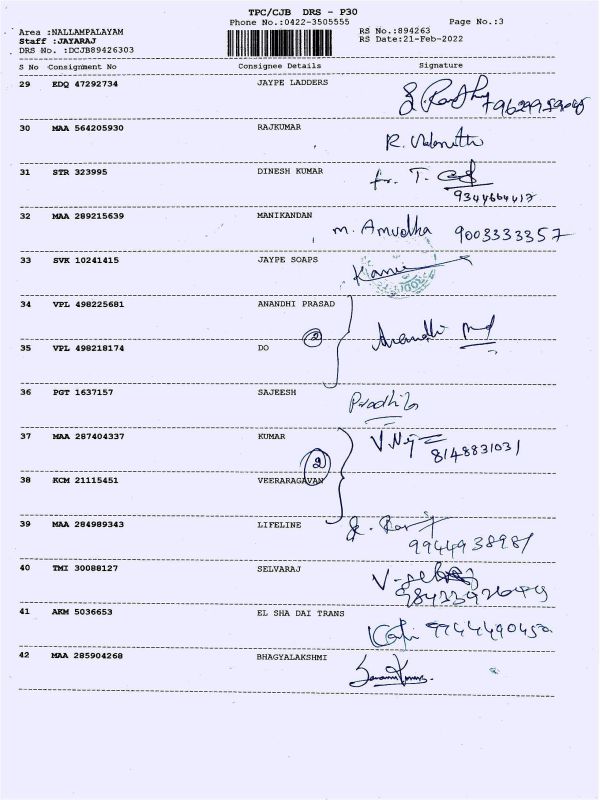 TPC/CJB DRS - P30
Phone No.:0422-3505555
Page No.:3
Area :NALLAMPALAYAM
RS No.:894263
Staff :JAYARAJ
RS Date:21-Feb-2022
DRS No. :DCJB89426303
S No Consignment No Consignee Details Signature
29 EDQ 47292734 JAYPE LADDERS
30 MAA 564205930 RAJKUMAR
31 STR 323995 DINESH KUMAR
9344664417
32 MAA 289215639 MANIKANDAN M. Amudha 9003333357
33 SVK 10241415 JAYPE SOAPS
34 VPL 498225681 ANANDHI PRASAD
2 Anandhi
35 VPL 498218174 DO
36 PGT 1637157 SAJEESH
37 MAA 287404337 KUMAR
8148831031
2
38 KCM 21115451 VEERARAGAVAN
39 MAA 284989343 LIFELINE
9944938981
40 TMI 30088127 SELVARAJ
41 AKM 5036653 EL SHA DAI TRANS
42 MAA 285904268 BHAGYALAKSHMI